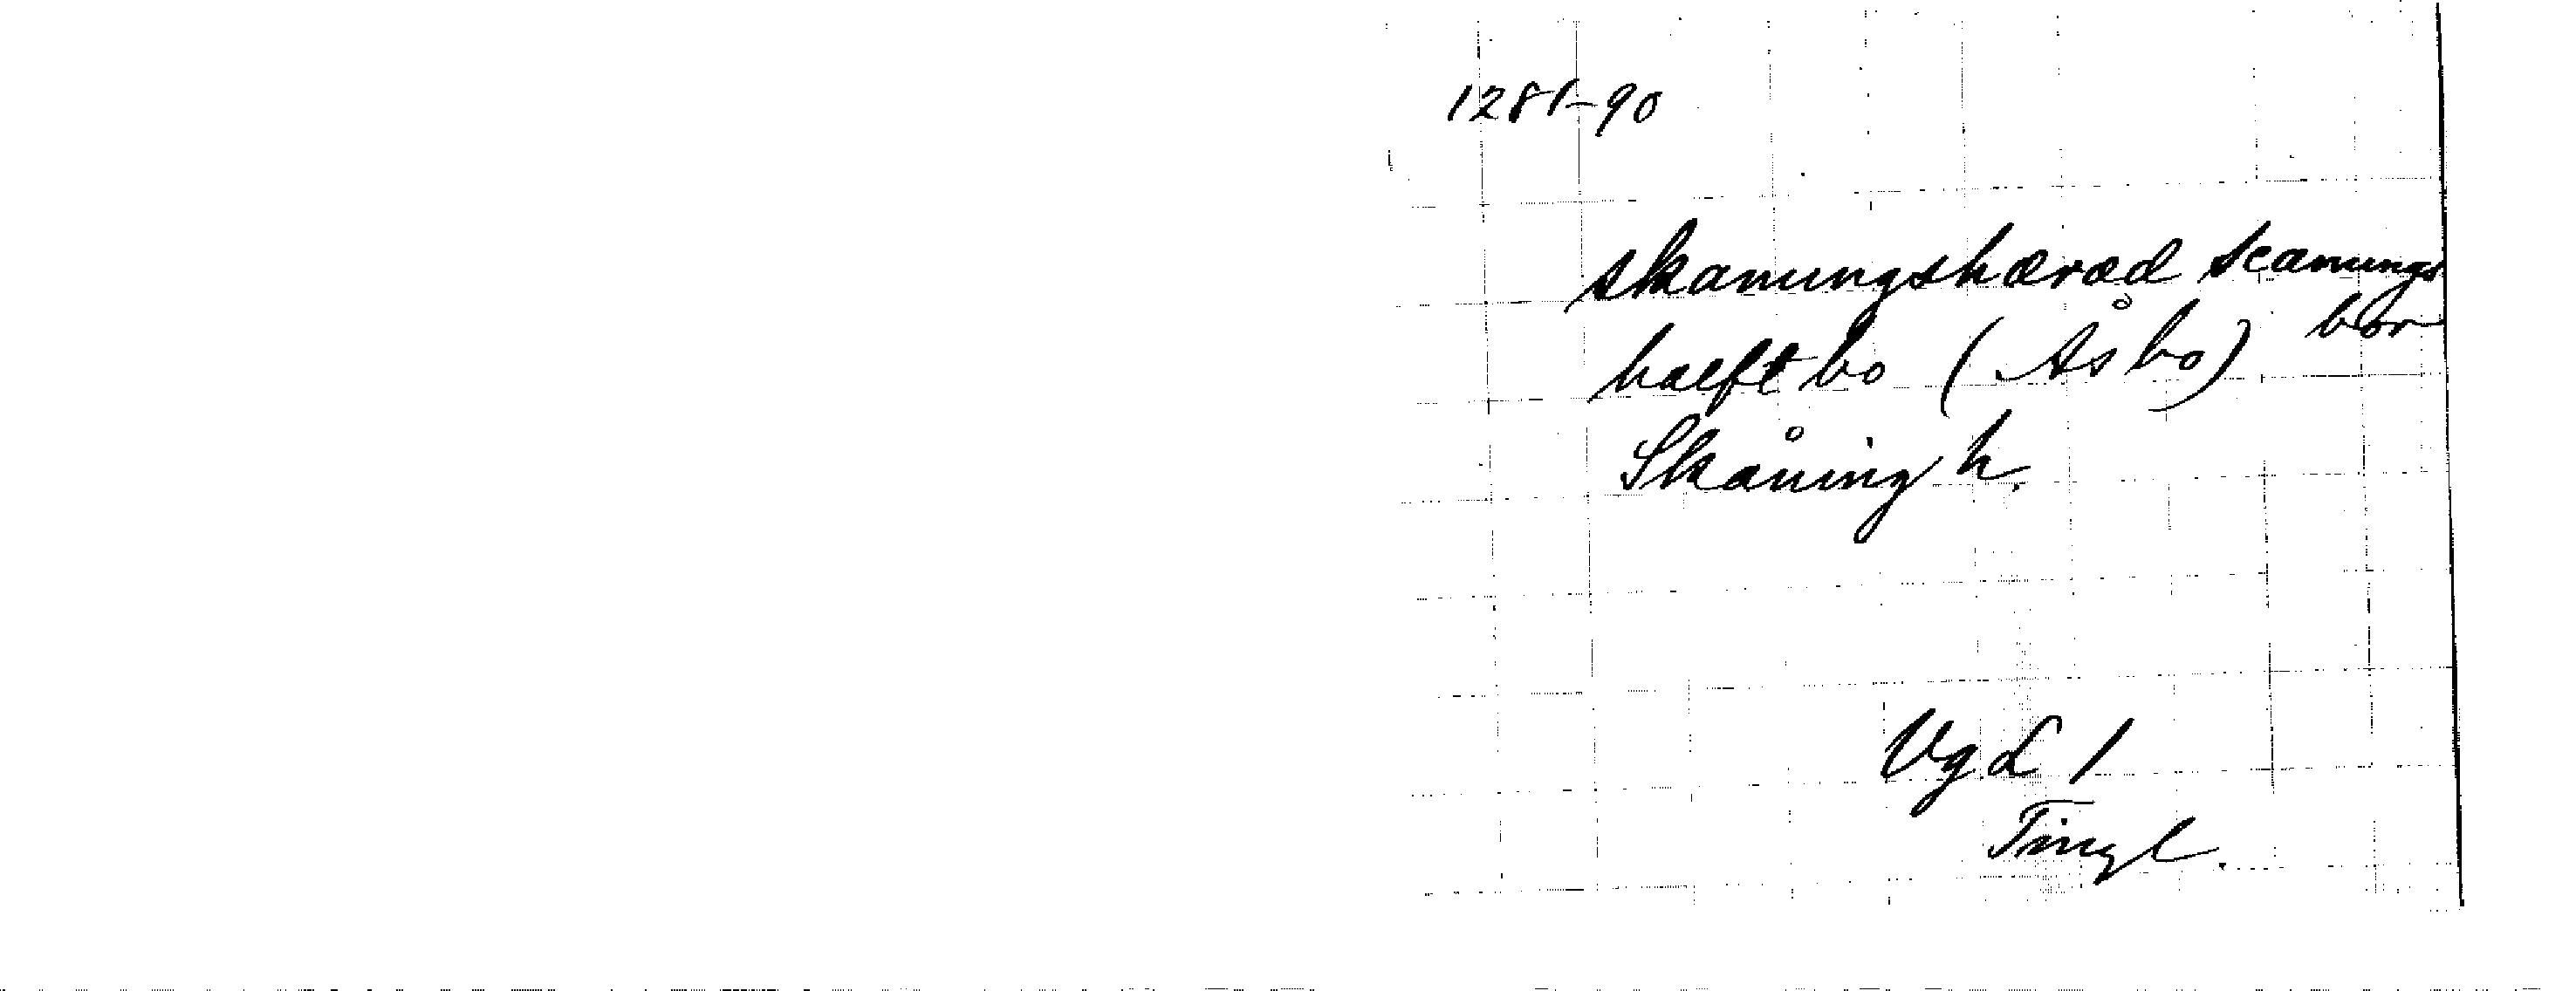 1281-90
skanungshæræd scanungs
bor
halft bo (Åsbo)
Skåning h.
Vg L 1
Tingl.